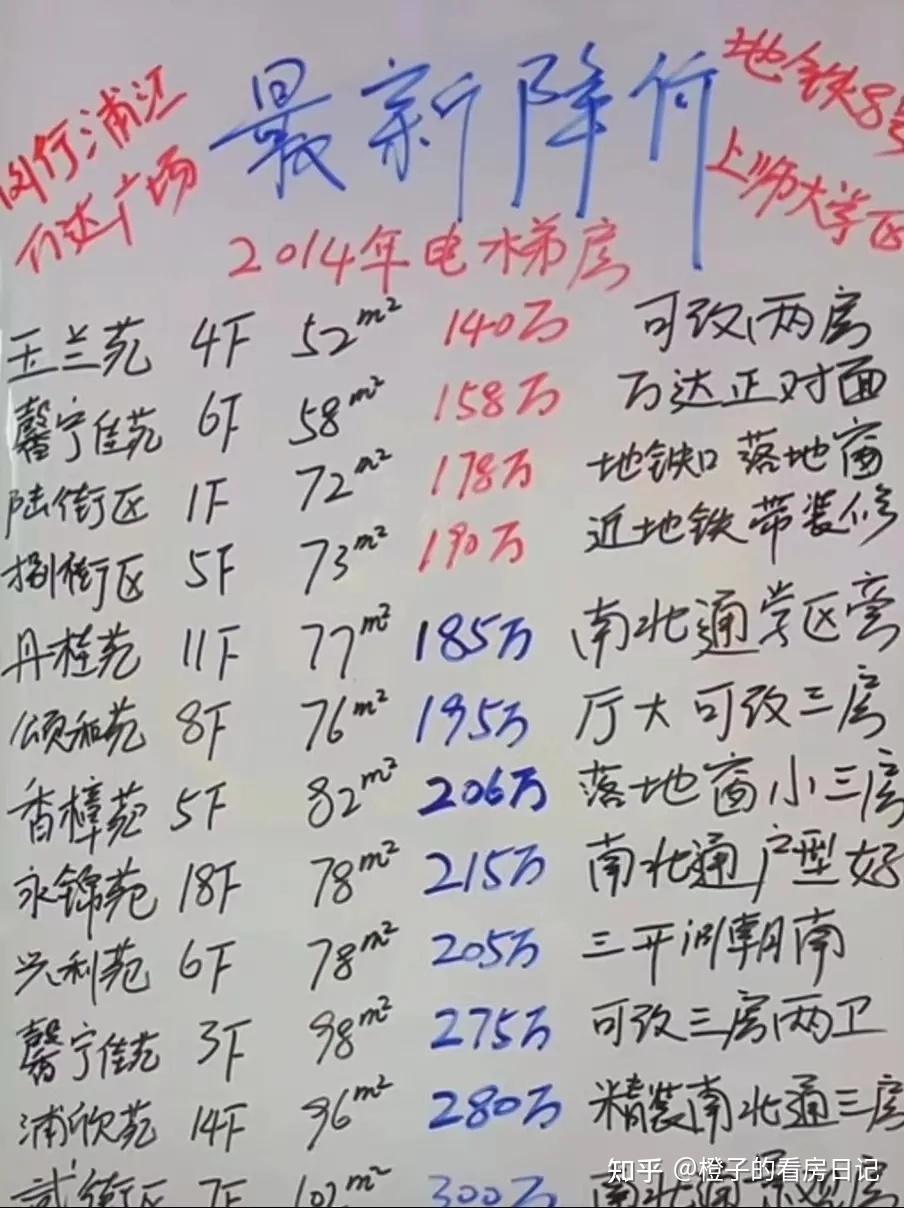 最新降价
闵行浦江
万达广场
地铁8号
上师大学区
2014年电梯房
玉兰苑 4F 52m² 140万 可改两房
馨宁佳苑 6F 58m² 158万 万达正对面
陆街区 1F 72m² 178万 地铁口 落地窗
捌街区 5F 73m² 190万 近地铁 带装修
丹桂苑 11F 77m² 185万 南北通学区旁
颂和苑 8F 76m² 195万 厅大可改三房
香樟苑 5F 82m² 206万 落地窗小三房
永锦苑 18F 78m² 215万 南北通户型好
兴利苑 6F 78m² 205万 三开间朝南
馨宁佳苑 3F 98m² 275万 可改三房两卫
浦欣苑 14F 96m² 280万 精装南北通三房
贰街区 7F 102m² 300万 南北通景观房
知乎 @橙子的看房日记